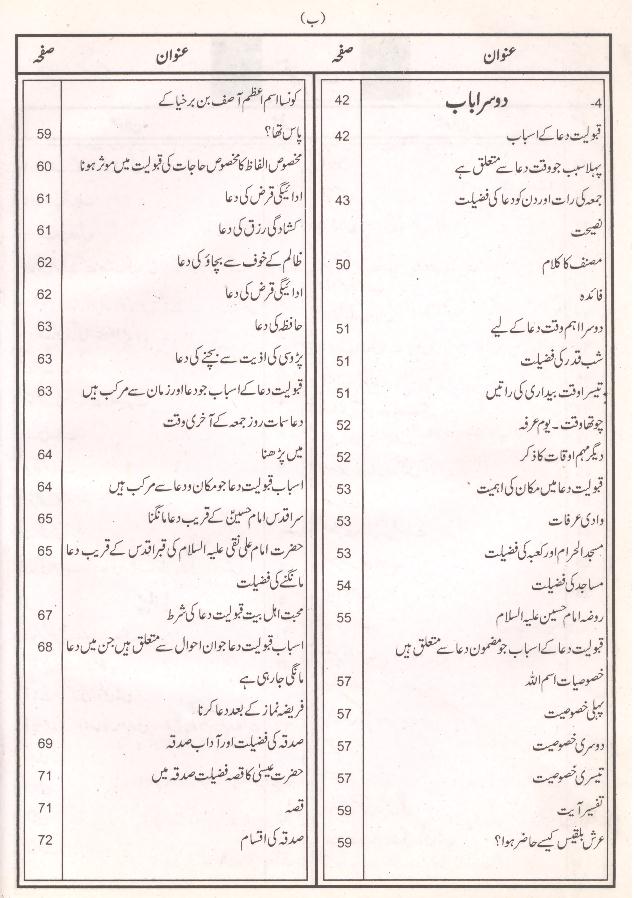 (ب)
عنوان صفحہ
4- دوسرا باب 42
قبولیت دعا کے اسباب 42
پہلا سبب جو وقت دعا سے متعلق ہے
جمعہ کی رات اور دن کو دعا کی فضیلت 43
نصیحت
مصنف کا کلام 50
فائدہ
دوسرا اہم وقت دعا کے لیے 51
شب قدر کی فضیلت 51
تیسرا وقت بیداری کی راتیں 51
چوتھا وقت ۔ یوم عرفہ 52
دیگر مہم اوقات کا ذکر 52
قبولیت دعا میں مکان کی اہمیت 53
وادی عرفات 53
مسجد الحرام اور کعبہ کی فضیلت 53
مساجد کی فضیلت 54
روضہ امام حسین علیہ السلام 55
قبولیت دعا کے اسباب جو مضمون دعا سے متعلق ہیں
خصوصیات اسم اللہ 57
پہلی خصوصیت 57
دوسری خصوصیت 57
تیسری خصوصیت 57
تفسیر آیت 59
عرش بلقیس کیسے حاضر ہوا؟ 59
عنوان صفحہ
کونسا اسم اعظم آصف بن برخیا کے
پاس تھا؟ 59
مخصوص الفاظ کا مخصوص حاجات کی قبولیت میں موثر ہونا 60
ادائیگی قرض کی دعا 61
کشادگی رزق کی دعا 61
ظالم کے خوف سے بچاؤ کی دعا 62
ادائیگی قرض کی دعا 62
حافظہ کی دعا 63
پڑوسی کی اذیت سے بچنے کی دعا 63
قبولیت دعا کے اسباب جو دعا اور زمان سے مرکب ہیں 63
دعا سمات روز جمعہ کے آخری وقت
میں پڑھنا 64
اسباب قبولیت دعا جو مکان و دعا سے مرکب ہیں 64
سر اقدس امام حسینؑ کے قریب دعا مانگنا 65
حضرت امام علی نقی علیہ السلام کی قبر اقدس کے قریب دعا 65
مانگنے کی فضیلت
محبت اہل بیت قبولیت دعا کی شرط 67
اسباب قبولیت دعا جو ان احوال سے متعلق ہیں جن میں دعا 68
مانگی جا رہی ہے
فریضہ نماز کے بعد دعا کرنا
صدقہ کی فضیلت اور آداب صدقہ 69
حضرت عیسیٰ کا قصہ فضیلت صدقہ میں 71
قصہ 71
صدقہ کی اقسام 72